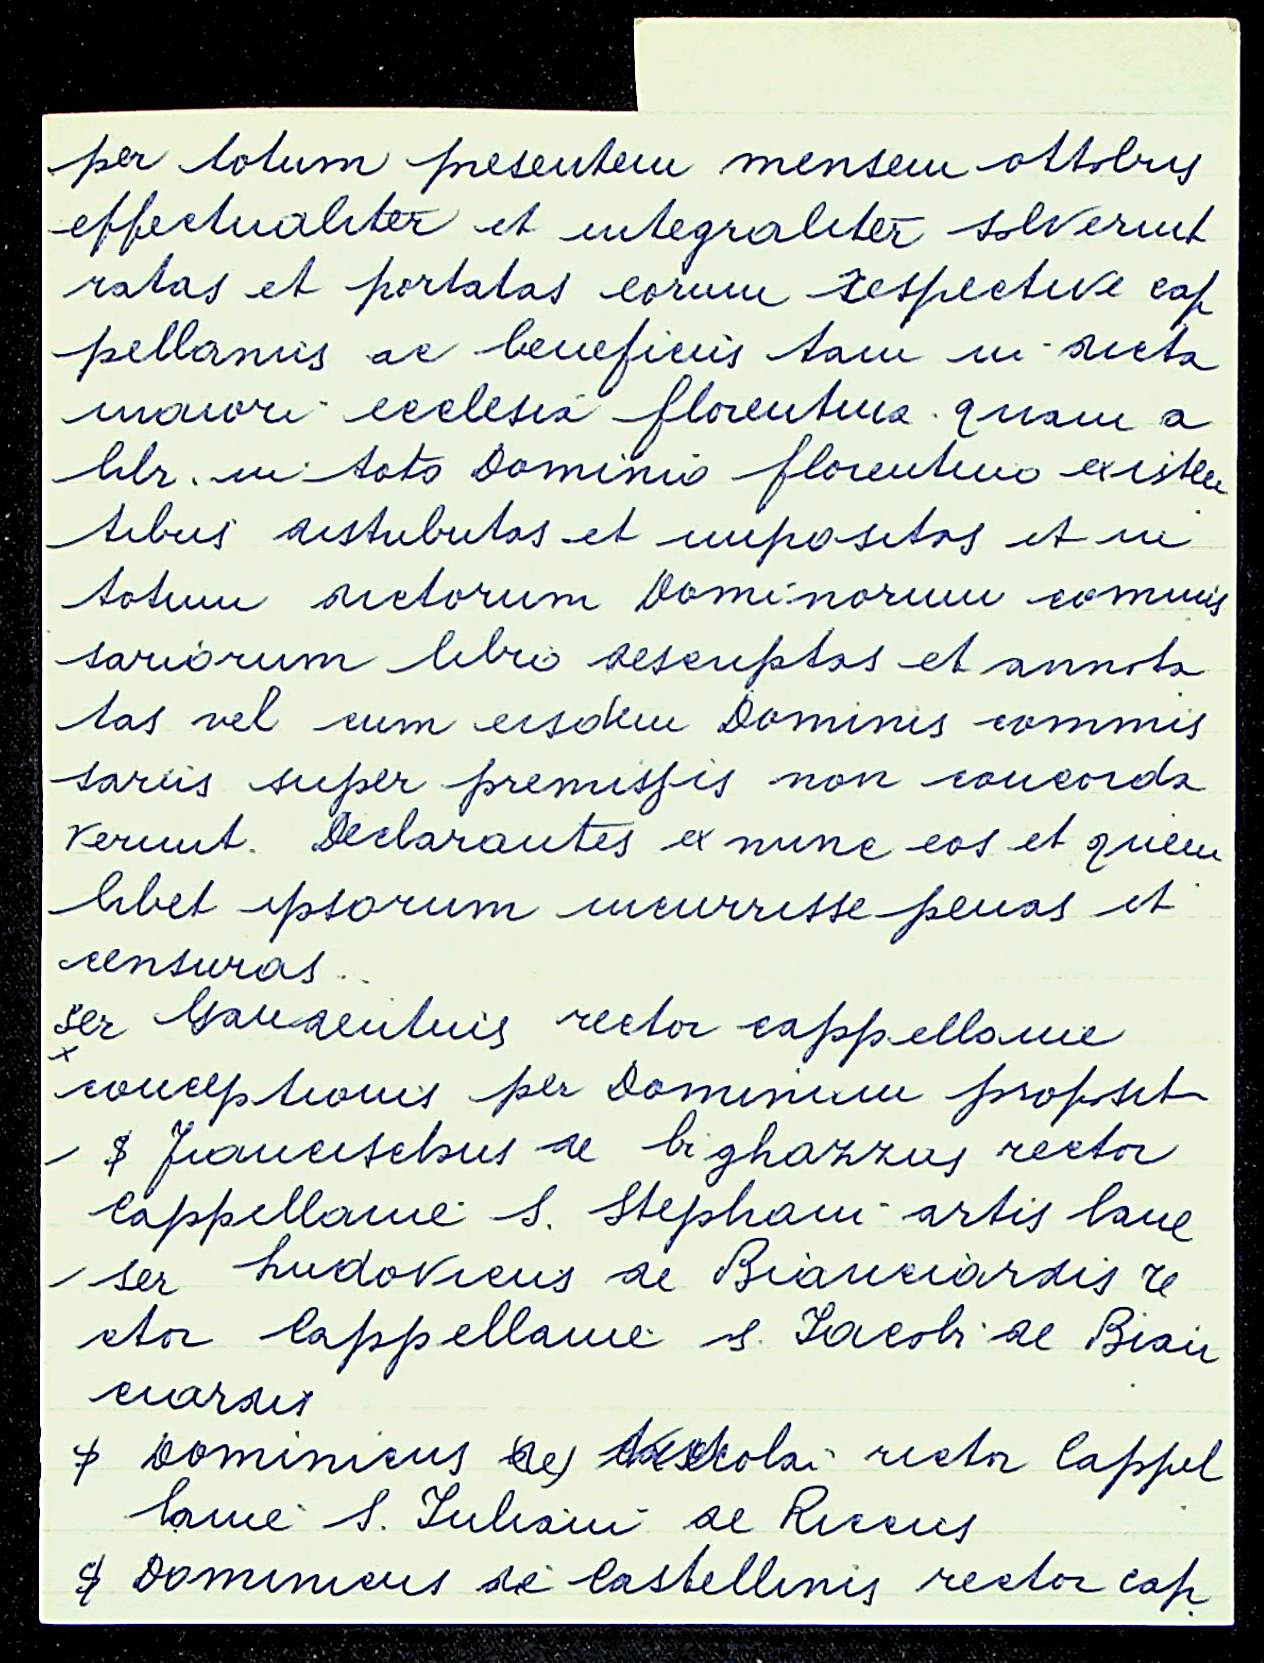 per totum presentem mensem ottobris
effectualiter et integraliter solverint
ratas et portatas eorum respective cap
pellanis ac beneficiis tam in dicta
maiori ecclesia florentina quam a
libi. in toto Dominio florentino existen
tibus distributas et impositas et in
totum dictorum Dominorum commis
sariorum libro descriptas et annota
tas vel cum eisdem Dominis commis
sariis super premissis non concorda
verint. Declarantes ex nunc eos et quem
libet ipsorum incurrisse penas et
censuras..
ser Gaudentius rector cappellanie
x
conceptionis per Dominum proposit
/ $ Francischus de bighazzus rector
Cappellanie S. Stephani artis lane
/ ser Ludovicus de Bianciardis re
ctor Cappellanie s. Iacobi de Bian
ciardis
$ Dominicus de rector Cappel
lanie S. Iuliani de Riccus
$ Dominicus de Castellinis rector cap.